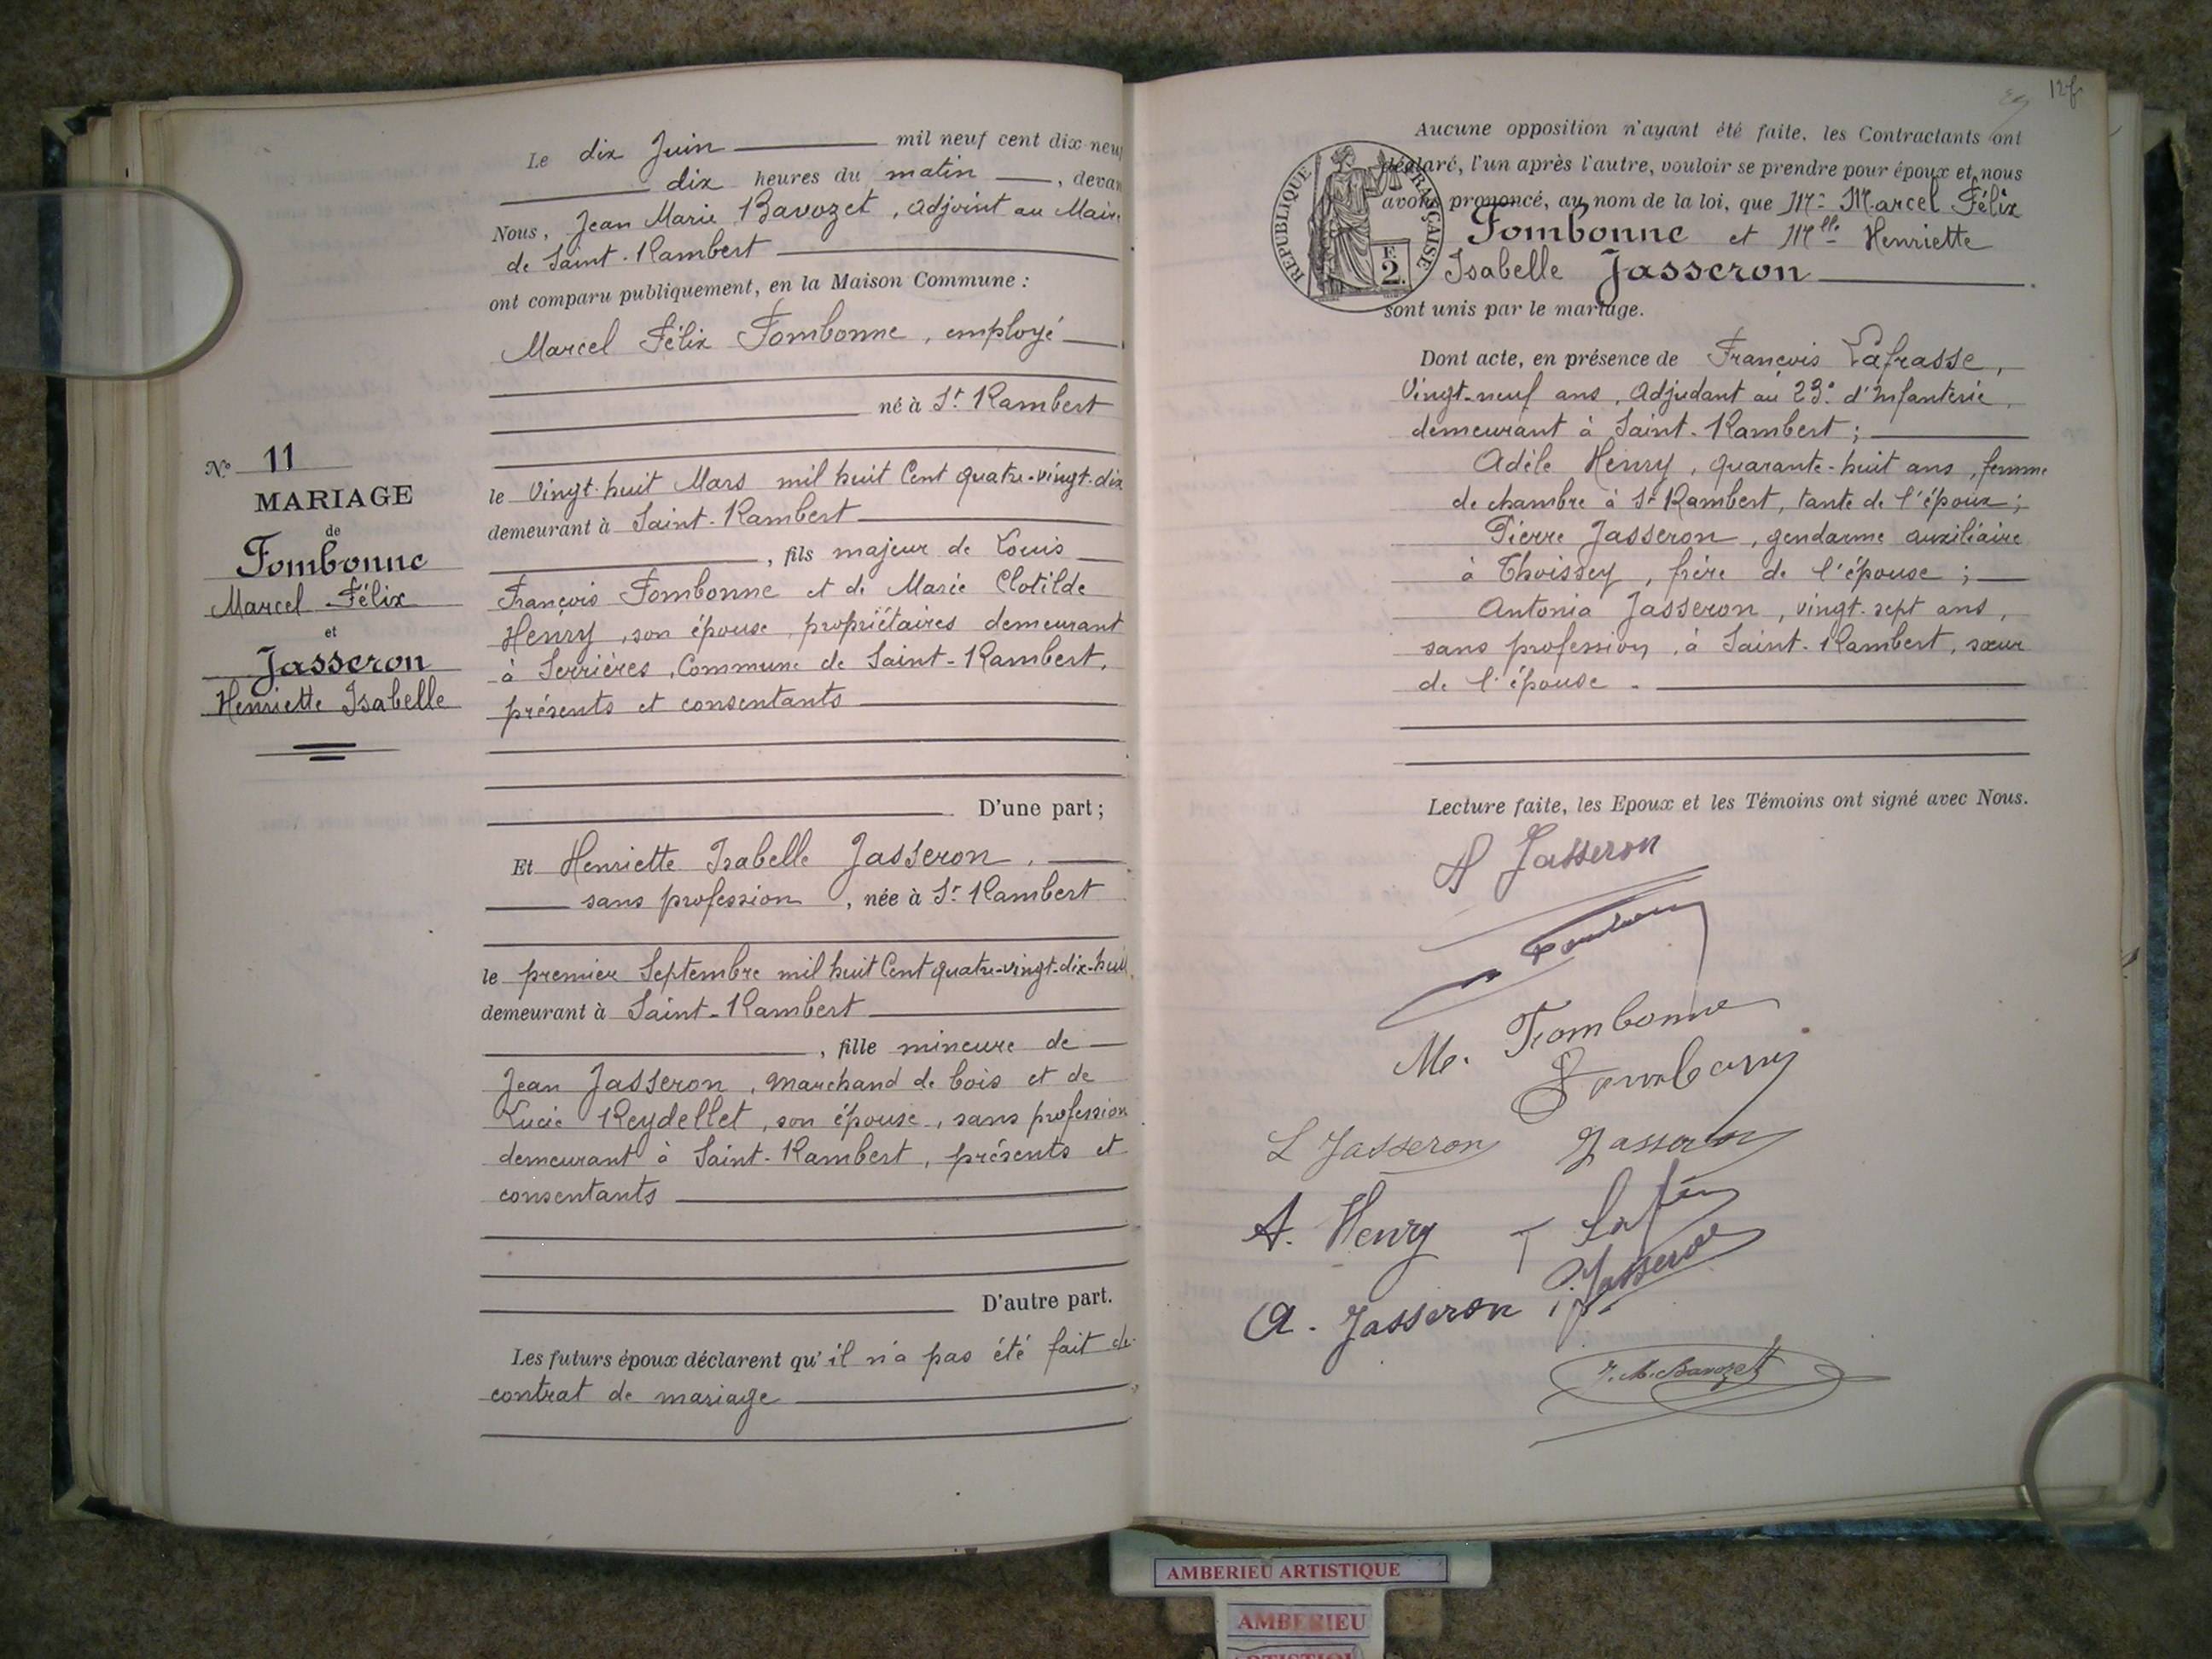 N° 11
MARIAGE
de
Fombonne
Marcel Félix
et
Jasseron
Henriette Isabelle
Le dix Juin mil neuf cent dix-neu
dix heures du matin, devan
Nous, Jean Marie Bavozet, Adjoint au Maire
de Saint-Rambert
ont comparu publiquement, en la Maison Commune :
Marcel Félix Fombonne, employé
né à St Rambert
le Vingt-huit Mars mil huit Cent quatre-vingt-dix
demeurant à Saint-Rambert
, fils majeur de Louis
François Fombonne et de Marie Clotilde
Henry, son épouse, propriétaires demeurant
à Serrières, Commune de Saint-Rambert,
présents et consentants
D'une part ;
Et Henriette Isabelle Jasseron,
sans profession, née à St Rambert
le premier Septembre mil huit Cent quatre-vingt-dix-huit
demeurant à Saint-Rambert
, fille mineure de
Jean Jasseron, Marchand de bois et de
Lucie Reydellet, son épouse, sans profession
demeurant à Saint-Rambert, présents et
consentants
D'autre part.
Les futurs époux déclarent qu'il n'a pas été fait de
contrat de mariage
127
Aucune opposition n'ayant été faite, les Contractants ont
déclaré, l'un après l'autre, vouloir se prendre pour époux et nous
avons prononcé, au nom de la loi, que Mr Marcel Félix
Fombonne et Mlle Henriette
Isabelle Jasseron
sont unis par le mariage.
REPUBLIQUE FRANÇAISE
F.
2.
Dont acte, en présence de François Lafrasse,
Vingt-neuf ans, Adjudant au 23e d'Infanterie,
demeurant à Saint-Rambert ;
Adèle Henry, quarante-huit ans, femme
de chambre à St Rambert, tante de l'époux ;
Pierre Jasseron, gendarme auxiliaire
à Thoissey, frère de l'épouse ;
Antonia Jasseron, vingt-sept ans,
sans profession, à Saint-Rambert, sœur
de l'épouse.
Lecture faite, les Epoux et les Témoins ont signé avec Nous.
H Jasseron
M. Fombonne
L Jasseron Jasseron
A. Henry
A. Jasseron P. Jasseron
J. M. Bavozet
AMBERIEU ARTISTIQUE
AMBERIEU
ARTISTIQU